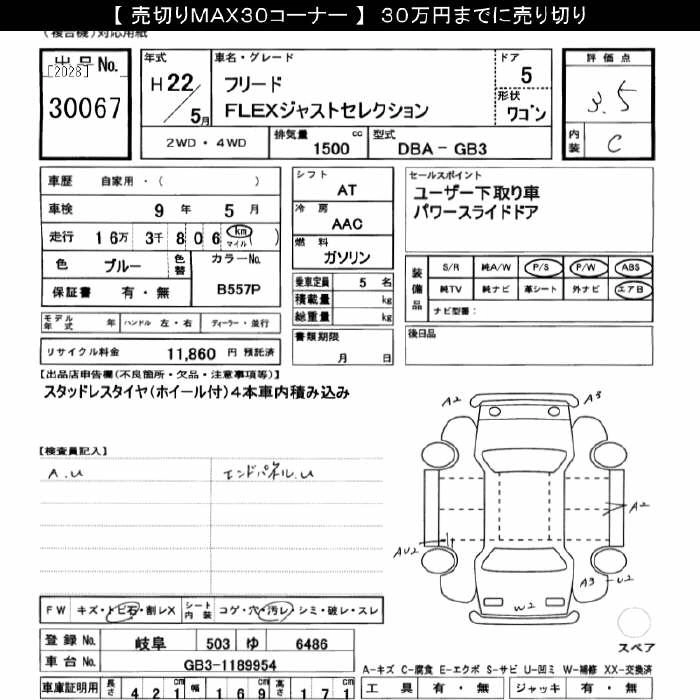 【 売切りMAX30コーナー 】 30万円までに売り切り
(複合機)対応用紙
出品No.
[2028]
30067
年式
H 22/5月
車名・グレード
フリード
FLEXジャストセレクション
ドア
5
形状
ワゴン
評価点
3.5
内装
C
2WD・4WD
排気量 1500 cc
型式 DBA-GB3
車歴 自家用・( )
車検 9年 5月
走行 16万 3千 806 (km マイル)
色 ブルー 色替
カラーNo. B557P
保証書 有・無
モデル年式 年 ハンドル 左・右 ディーラー・並行
リサイクル料金 11,860 円 預託済
シフト AT
冷房 AAC
燃料 ガソリン
乗車定員 5 名
積載量 kg
総重量 kg
書類期限
月 日
セールスポイント
ユーザー下取り車
パワースライドドア
装備品
S/R 純A/W P/S P/W ABS
純TV 純ナビ 革シート 外ナビ エアB
ナビ型番:
後日品
【出品店申告欄(不良箇所・欠品・注意事項等)】
スタッドレスタイヤ(ホイール付)4本車内積み込み
【検査員記入】
A.U エンドパネル.U
A2 A3
A2
AU2
A3 U2
W2
スペア
FW キズ・トビ石・割レX シート内装 コゲ・穴・汚レ・シミ・破レ・スレ
登録No. 岐阜 503 ゆ 6486
車台No. GB3-1189954
車庫証明用 長さ 421 cm 幅 169 cm 高さ 171 cm
A-キズ C-腐食 E-エクボ S-サビ U-凹ミ W-補修 XX-交換済
工具 有・無 ジャッキ 有・無